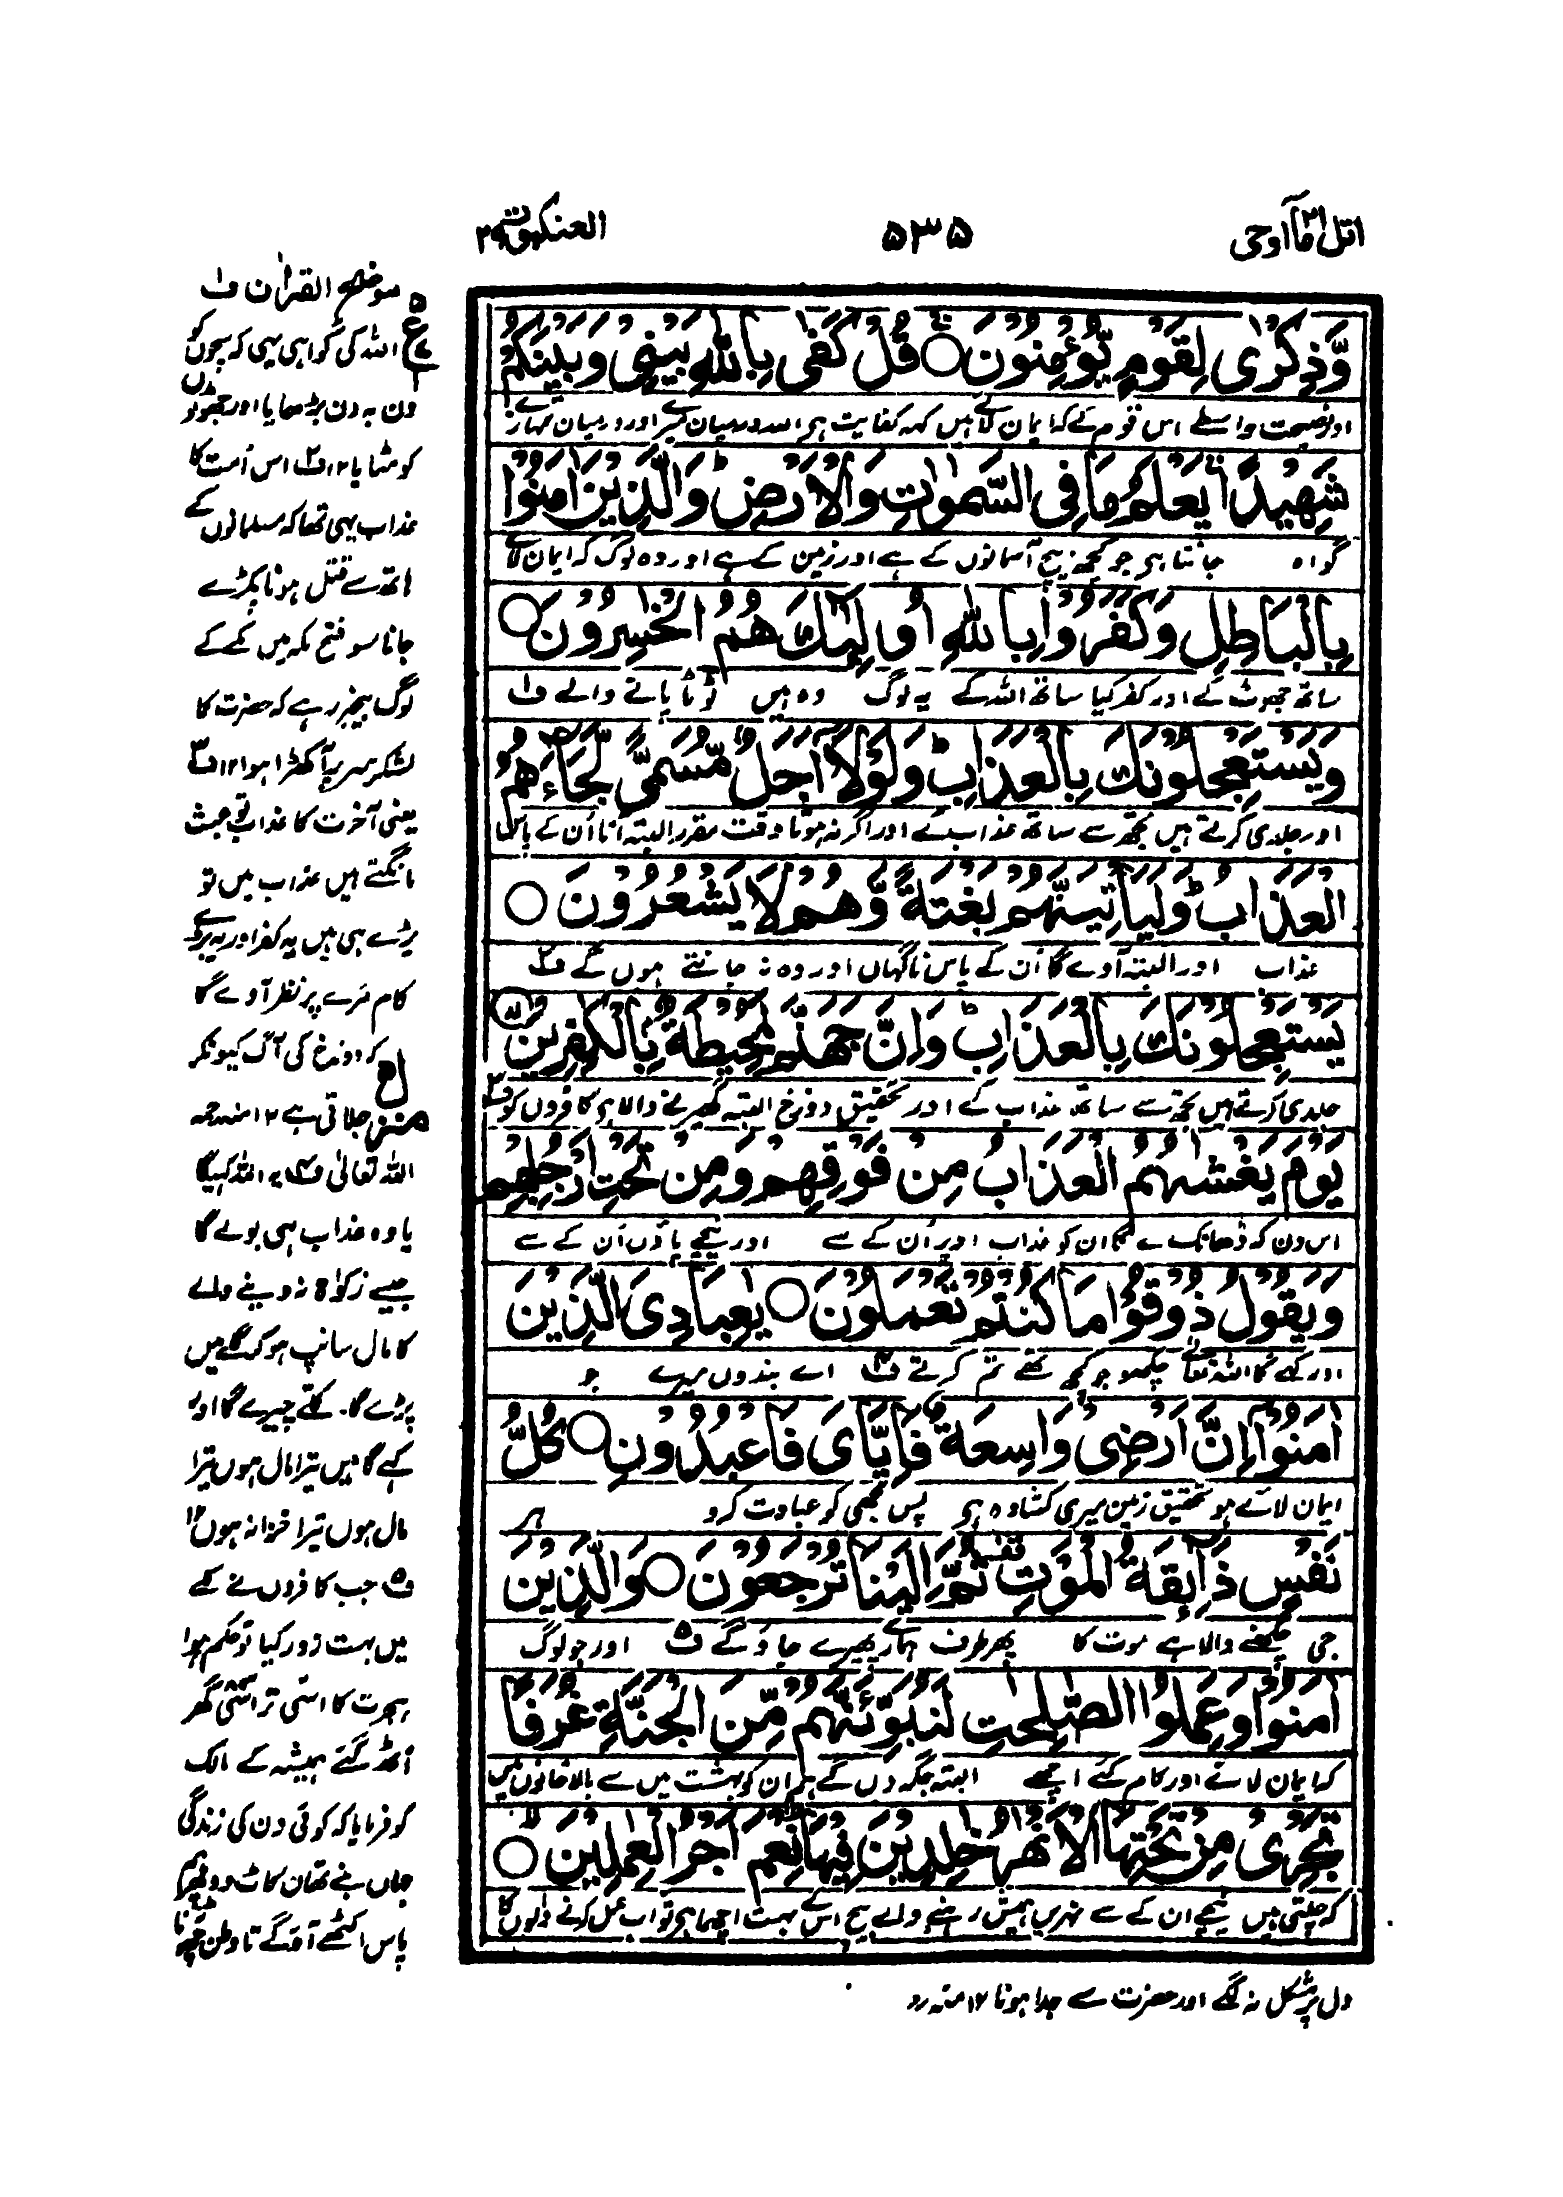 اتل ما اوحی ۲۱
۵۳۵
العنکبوت ۲۹
وَّذِكْرٰى لِقَوْمٍ يُّؤْمِنُوْنَ ○ قُلْ كَفٰى بِاللّٰهِ بَيْنِىْ وَبَيْنَكُمْ
اور نصیحت واسطے اس قوم کے کہ ایمان لاتے ہیں کہہ کفایت ہے اللہ درمیان میرے اور درمیان تمہارے
شَهِيْدًا ۚ يَعْلَمُ مَا فِى السَّمٰوٰتِ وَالْاَرْضِ ؕ وَالَّذِيْنَ اٰمَنُوْا
گواہ جانتا ہے جو کچھ بیچ آسمانوں کے ہے اور زمین کے ہے اور وہ لوگ کہ ایمان لائے
بِالْبَاطِلِ وَكَفَرُوْا بِاللّٰهِ اُولٰٓئِكَ هُمُ الْخٰسِرُوْنَ ○
ساتھ جھوٹ کے اور کفر کیا ساتھ اللہ کے یہ لوگ وہ ہیں ٹوٹا پانے والے ف۱
وَيَسْتَعْجِلُوْنَكَ بِالْعَذَابِ ؕ وَلَوْلَاۤ اَجَلٌ مُّسَمًّى لَّجَآءَهُمُ
اور جلدی کرتے ہیں تجھ سے ساتھ عذاب کے اور اگر نہ ہوتا وقت مقرر البتہ آتا اُن کے پاس
الْعَذَابُ ؕ وَلَيَاْتِيَنَّهُمْ بَغْتَةً وَّهُمْ لَا يَشْعُرُوْنَ ○
عذاب اور البتہ آوے گا اُن کے پاس ناگہاں اور وہ نہ جانتے ہوں گے ف۲
يَسْتَعْجِلُوْنَكَ بِالْعَذَابِ ؕ وَاِنَّ جَهَنَّمَ لَمُحِيْطَةٌۢ بِالْكٰفِرِيْنَ ○
جلدی کرتے ہیں تجھ سے ساتھ عذاب کے اور تحقیق دوزخ البتہ گھیرنے والا ہے کافروں کو ف۳
يَوْمَ يَغْشٰهُمُ الْعَذَابُ مِنْ فَوْقِهِمْ وَمِنْ تَحْتِ اَرْجُلِهِمْ
اس دن کہ ڈھانک لے گا ان کو عذاب اوپر اُن کے سے اور نیچے پاؤں اُن کے سے
وَيَقُوْلُ ذُوْقُوْا مَا كُنْتُمْ تَعْمَلُوْنَ ○ يٰعِبَادِىَ الَّذِيْنَ
اور کہے گا اللہ تعالٰے چکھو جو کچھ تھے تم کرتے ف۴ اے بندوں میرے جو
اٰمَنُوْۤا اِنَّ اَرْضِىْ وَاسِعَةٌ فَاِيَّاىَ فَاعْبُدُوْنِ ○ كُلُّ
ایمان لائے ہو تحقیق زمین میری کشادہ ہے پس مجھی کو عبادت کرو ہر
نَفْسٍ ذَآئِقَةُ الْمَوْتِ ۟ ثُمَّ اِلَيْنَا تُرْجَعُوْنَ ○ وَالَّذِيْنَ
جی چکھنے والا ہے موت کا پھر طرف ہمارے پھیرے جاؤ گے ف۵ اور جو لوگ
اٰمَنُوْا وَعَمِلُوا الصّٰلِحٰتِ لَنُبَوِّئَنَّهُمْ مِّنَ الْجَنَّةِ غُرَفًا
کہ ایمان لائے اور کام کئے اچھے البتہ جگہ دیں گے ہم ان کو بہشت میں سے بالا خانوں میں
تَجْرِىْ مِنْ تَحْتِهَا الْاَنْهٰرُ خٰلِدِيْنَ فِيْهَا ؕ نِعْمَ اَجْرُ الْعٰمِلِيْنَ ○
کہ چلتی ہیں نیچے ان کے سے نہریں ہمیش رہنے والے بیچ اس کے بہت اچھا ہے ثواب عمل کرنے والوں کا
موضح القرآن ف۱
اللہ کی گواہی یہی کہ سچوں کو
دن بہ دن بڑھایا اور جھوٹوں
کو مٹایا ۱۲ ف۲ اس امت کا
عذاب یہی تھا کہ مسلمانوں کے
ہاتھ سے قتل ہونا پکڑے
جانا سو فتح مکہ میں مکے کے
لوگ بیخبر رہے کہ حضرت کا
لشکر سر پر آ کھڑا ہوا ۱۲ ف۳
یعنی آخرت کا عذاب عبث
مانگتے ہیں عذاب میں تو
پڑے ہی ہیں یہ کفر اور یہ برے
کام مرے پر نظر آوے گا
کہ دوزخ کی آگ کیونکر
جلاتی ہے ۱۲ منہ رحمہ
اللہ تعالیٰ ف۴ یہ اللہ کہیگا
یا وہ عذاب ہی بولے گا
جیسے زکوٰۃ نہ دینے والے
کا مال سانپ ہو کر گلے میں
پڑے گا۔ کلّے چیرے گا اور
کہے گا میں تیرا مال ہوں تیرا
مال ہوں تیرا خزانہ ہوں ۱۲
ف۵ جب کافروں نے مکے
میں بہت زور کیا تو حکم ہوا
ہجرت کا اسّی تراسّی گھر
اُٹھ گئے ہمیشہ کے مالک
کو فرمایا کہ کوئی دن کی زندگی
جہاں بنے تھان کاٹ دو پھر ہم
پاس اکٹھے آؤ گے تا وطن چھوڑنا
دل پر مشکل نہ لگے اور حضرت سے جدا ہونا ۱۲ منہ رح